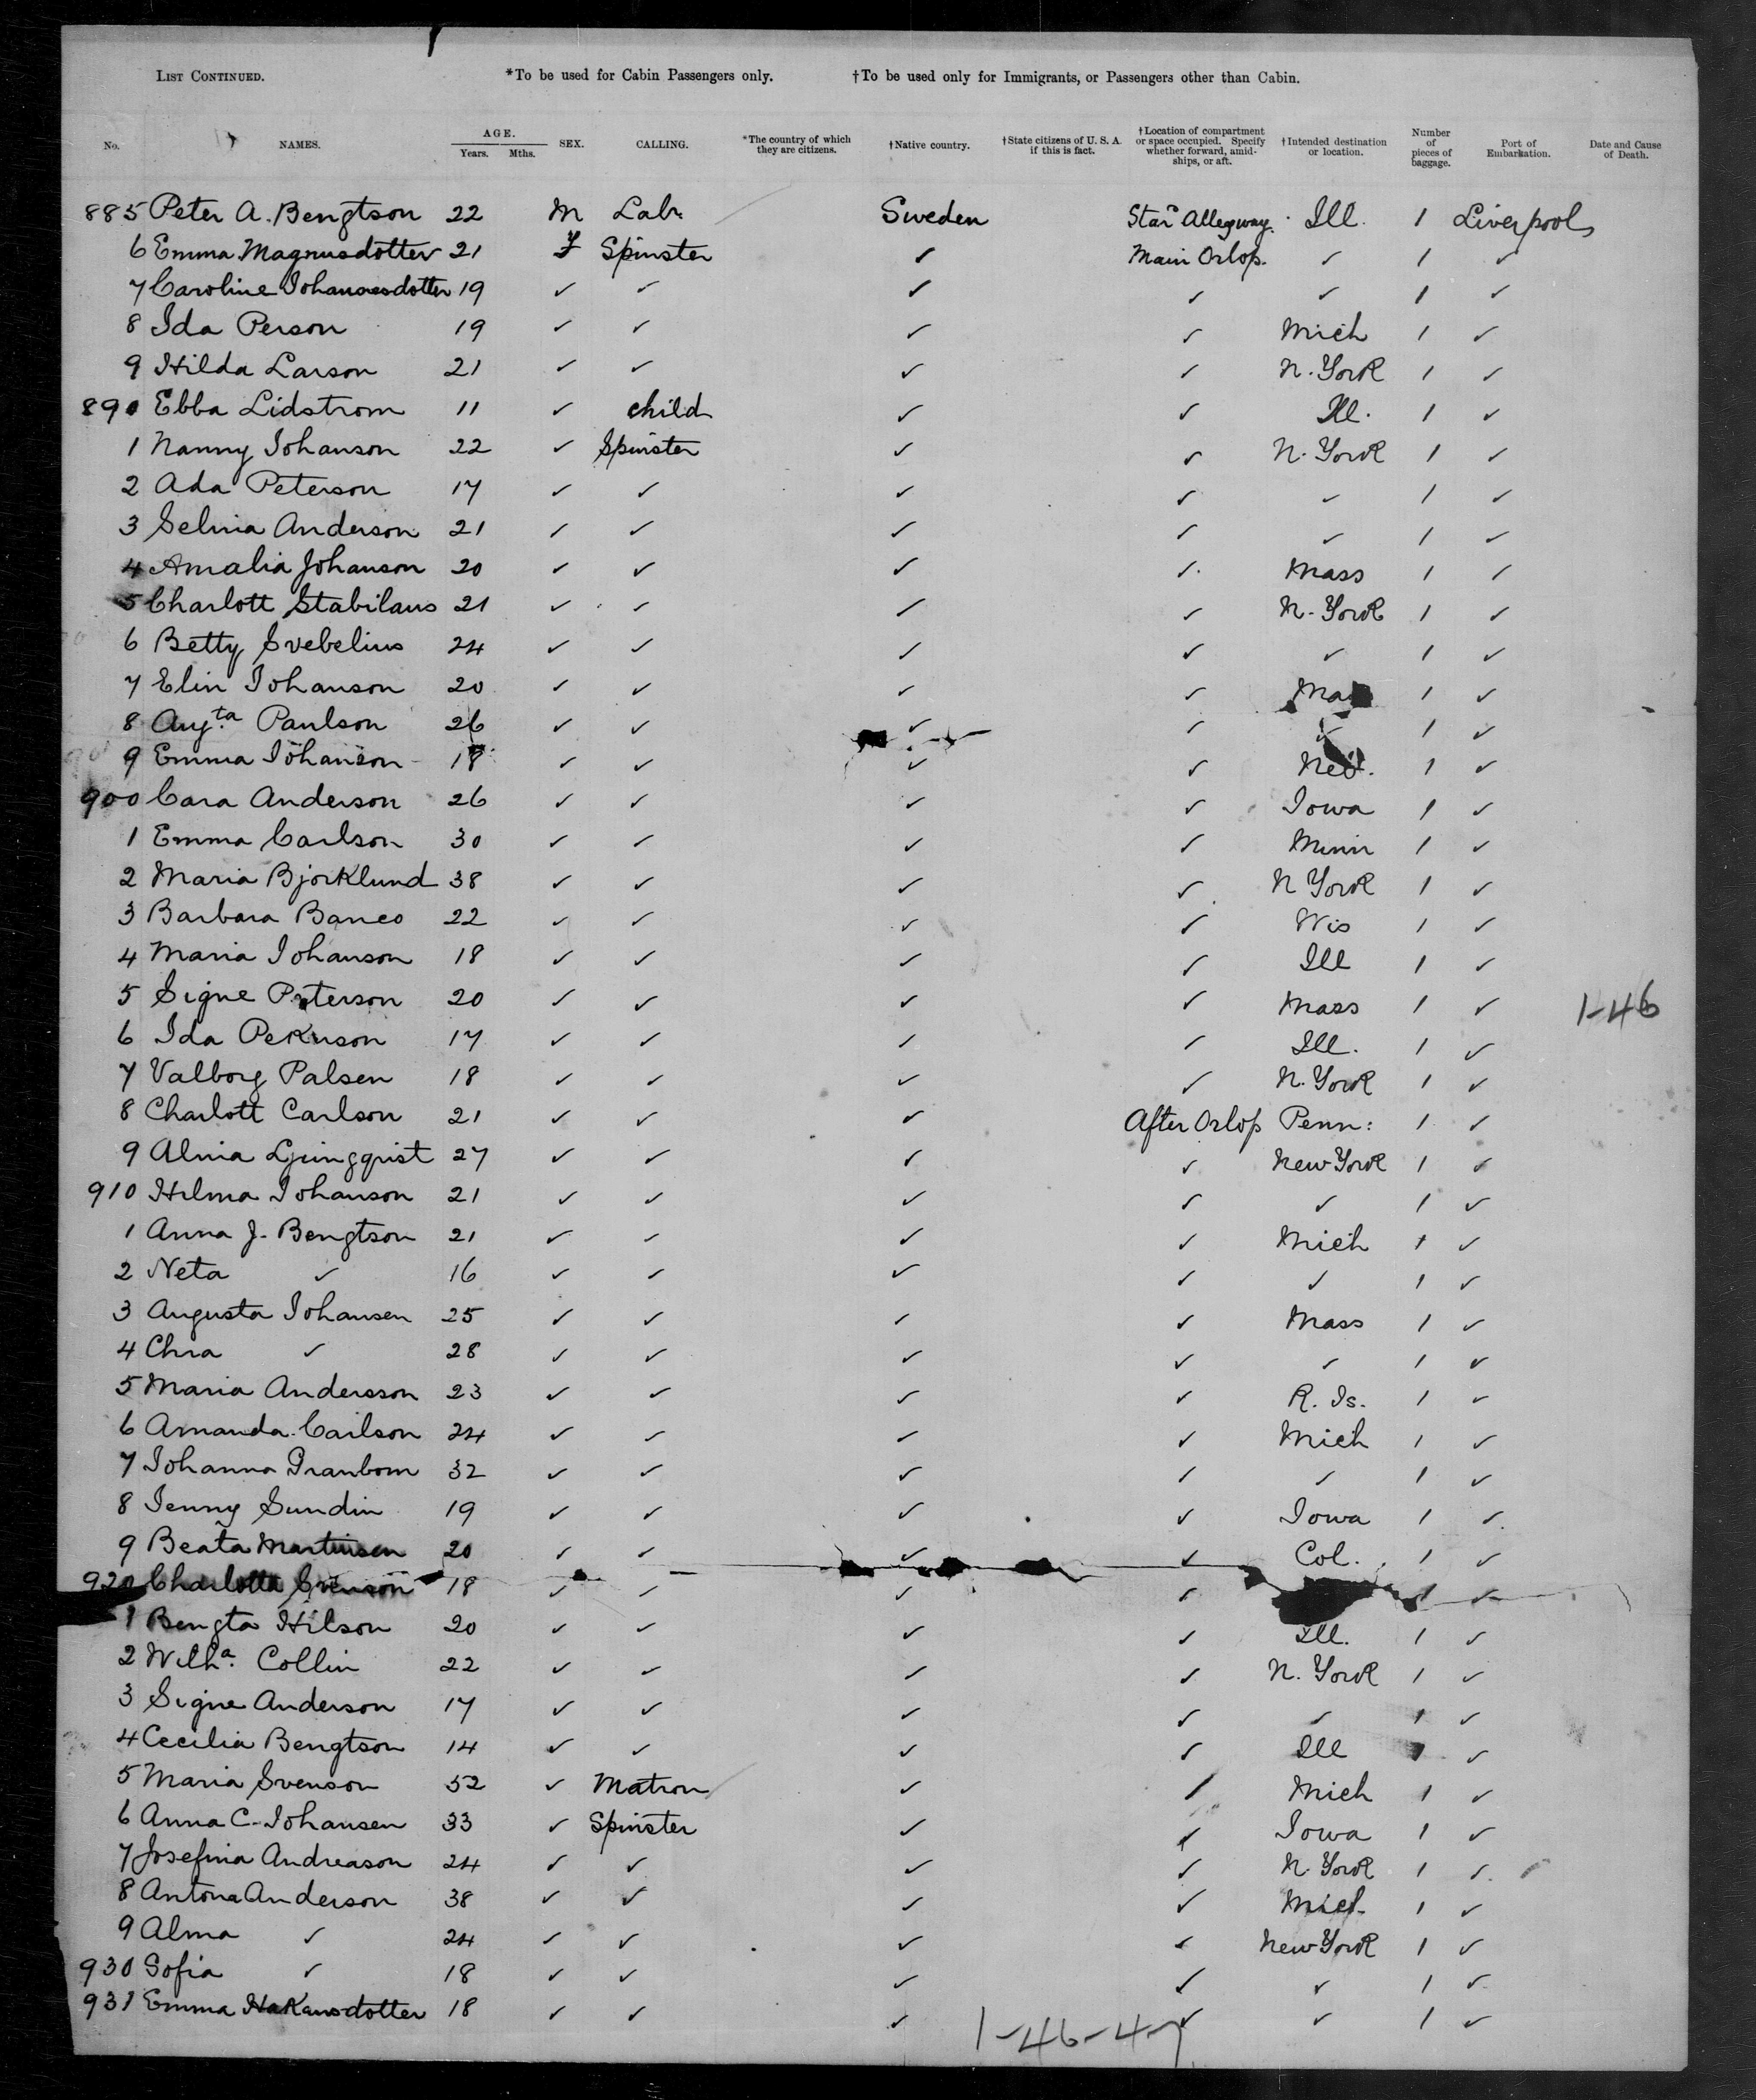 LIST CONTINUED. *To be used for Cabin Passengers only. †To be used only for Immigrants, or Passengers other than Cabin.
No. NAMES. AGE. Years. Mths. SEX. CALLING. *The country of which they are citizens. †Native country. †State citizens of U. S. A. if this is fact. †Location of compartment or space occupied. Specify whether forward, amidships, or aft. †Intended destination or location. Number of pieces of baggage. Port of Embarkation. Date and Cause of Death.
885 Peter A. Bengtson 22 M Labr Sweden Star Allegway. Ill. 1 Liverpool
6 Emma Magnusdotter 21 F Spinster ✓ Main Orlop. ✓ 1 ✓
7 Caroline Johannesdotter 19 ✓ ✓ ✓ ✓ ✓ 1 ✓
8 Ida Person 19 ✓ ✓ ✓ ✓ Mich 1 ✓
9 Hilda Larson 21 ✓ ✓ ✓ ✓ N. York 1 ✓
890 Ebba Lidstrom 11 ✓ child ✓ ✓ Ill. 1 ✓
1 Nanny Johanson 22 ✓ Spinster ✓ ✓ N. York 1 ✓
2 Ada Peterson 17 ✓ ✓ ✓ ✓ ✓ 1 ✓
3 Selma Anderson 21 ✓ ✓ ✓ ✓ ✓ 1 ✓
4 Amalia Johanson 20 ✓ ✓ ✓ ✓ Mass 1 ✓
5 Charlott Stabilaus 21 ✓ ✓ ✓ ✓ N. York 1 ✓
6 Betty Svebelius 24 ✓ ✓ ✓ ✓ ✓ 1 ✓
7 Elin Johanson 20 ✓ ✓ ✓ ✓ 1 ✓
8 Augta Paulson 26 ✓ ✓ ✓ ✓ ✓ 1 ✓
9 Emma Johanson 18 ✓ ✓ ✓ ✓ 1 ✓
900 Cara Anderson 26 ✓ ✓ ✓ ✓ Iowa 1 ✓
1 Emma Carlson 30 ✓ ✓ ✓ ✓ Minn 1 ✓
2 Maria Bjorklund 38 ✓ ✓ ✓ ✓ N York 1 ✓
3 Barbara Banco 22 ✓ ✓ ✓ ✓ Wis 1 ✓
4 Maria Johanson 18 ✓ ✓ ✓ ✓ Ill 1 ✓
5 Signe Peterson 20 ✓ ✓ ✓ ✓ Mass 1 ✓ 1-46
6 Ida Pekuson 17 ✓ ✓ ✓ ✓ Ill. 1 ✓
7 Valborg Palsen 18 ✓ ✓ ✓ ✓ N. York 1 ✓
8 Charlott Carlson 21 ✓ ✓ ✓ After Orlop Penn: 1 ✓
9 Alma Ljungqrist 27 ✓ ✓ ✓ ✓ New York 1 ✓
910 Hilma Johanson 21 ✓ ✓ ✓ ✓ ✓ 1 ✓
1 Anna J. Bengtson 21 ✓ ✓ ✓ ✓ Mich 1 ✓
2 Neta ✓ 16 ✓ ✓ ✓ ✓ ✓ 1 ✓
3 Augusta Johansen 25 ✓ ✓ ✓ ✓ Mass 1 ✓
4 Chra ✓ 28 ✓ ✓ ✓ ✓ ✓ 1 ✓
5 Maria Andersson 23 ✓ ✓ ✓ ✓ R. Is. 1 ✓
6 Amanda Carlson 24 ✓ ✓ ✓ ✓ Mich 1 ✓
7 Johanna Granbom 32 ✓ ✓ ✓ ✓ ✓ 1 ✓
8 Jenny Sundin 19 ✓ ✓ ✓ ✓ Iowa 1 ✓
9 Beata Martinsen 20 ✓ ✓ ✓ ✓ Col. 1 ✓
920 Charlotta Svenson 18 ✓ ✓ ✓ ✓ 1 ✓
1 Bengta Hilson 20 ✓ ✓ ✓ ✓ Ill. 1 ✓
2 Wilha. Collin 22 ✓ ✓ ✓ ✓ N. York 1 ✓
3 Signe Anderson 17 ✓ ✓ ✓ ✓ ✓ 1 ✓
4 Cecilia Bengtson 14 ✓ ✓ ✓ ✓ Ill 1 ✓
5 Maria Svenson 52 ✓ Matron ✓ ✓ Mich 1 ✓
6 Anna C. Johansen 33 ✓ Spinster ✓ ✓ Iowa 1 ✓
7 Josefina Andreason 24 ✓ ✓ ✓ ✓ N. York 1 ✓
8 Antona Anderson 38 ✓ ✓ ✓ ✓ Mich 1 ✓
9 Alma ✓ 24 ✓ ✓ ✓ ✓ New York 1 ✓
930 Sofia ✓ 18 ✓ ✓ ✓ ✓ ✓ 1 ✓
931 Emma Hakansdotter 18 ✓ ✓ ✓ ✓ ✓ 1 ✓
1-46-47